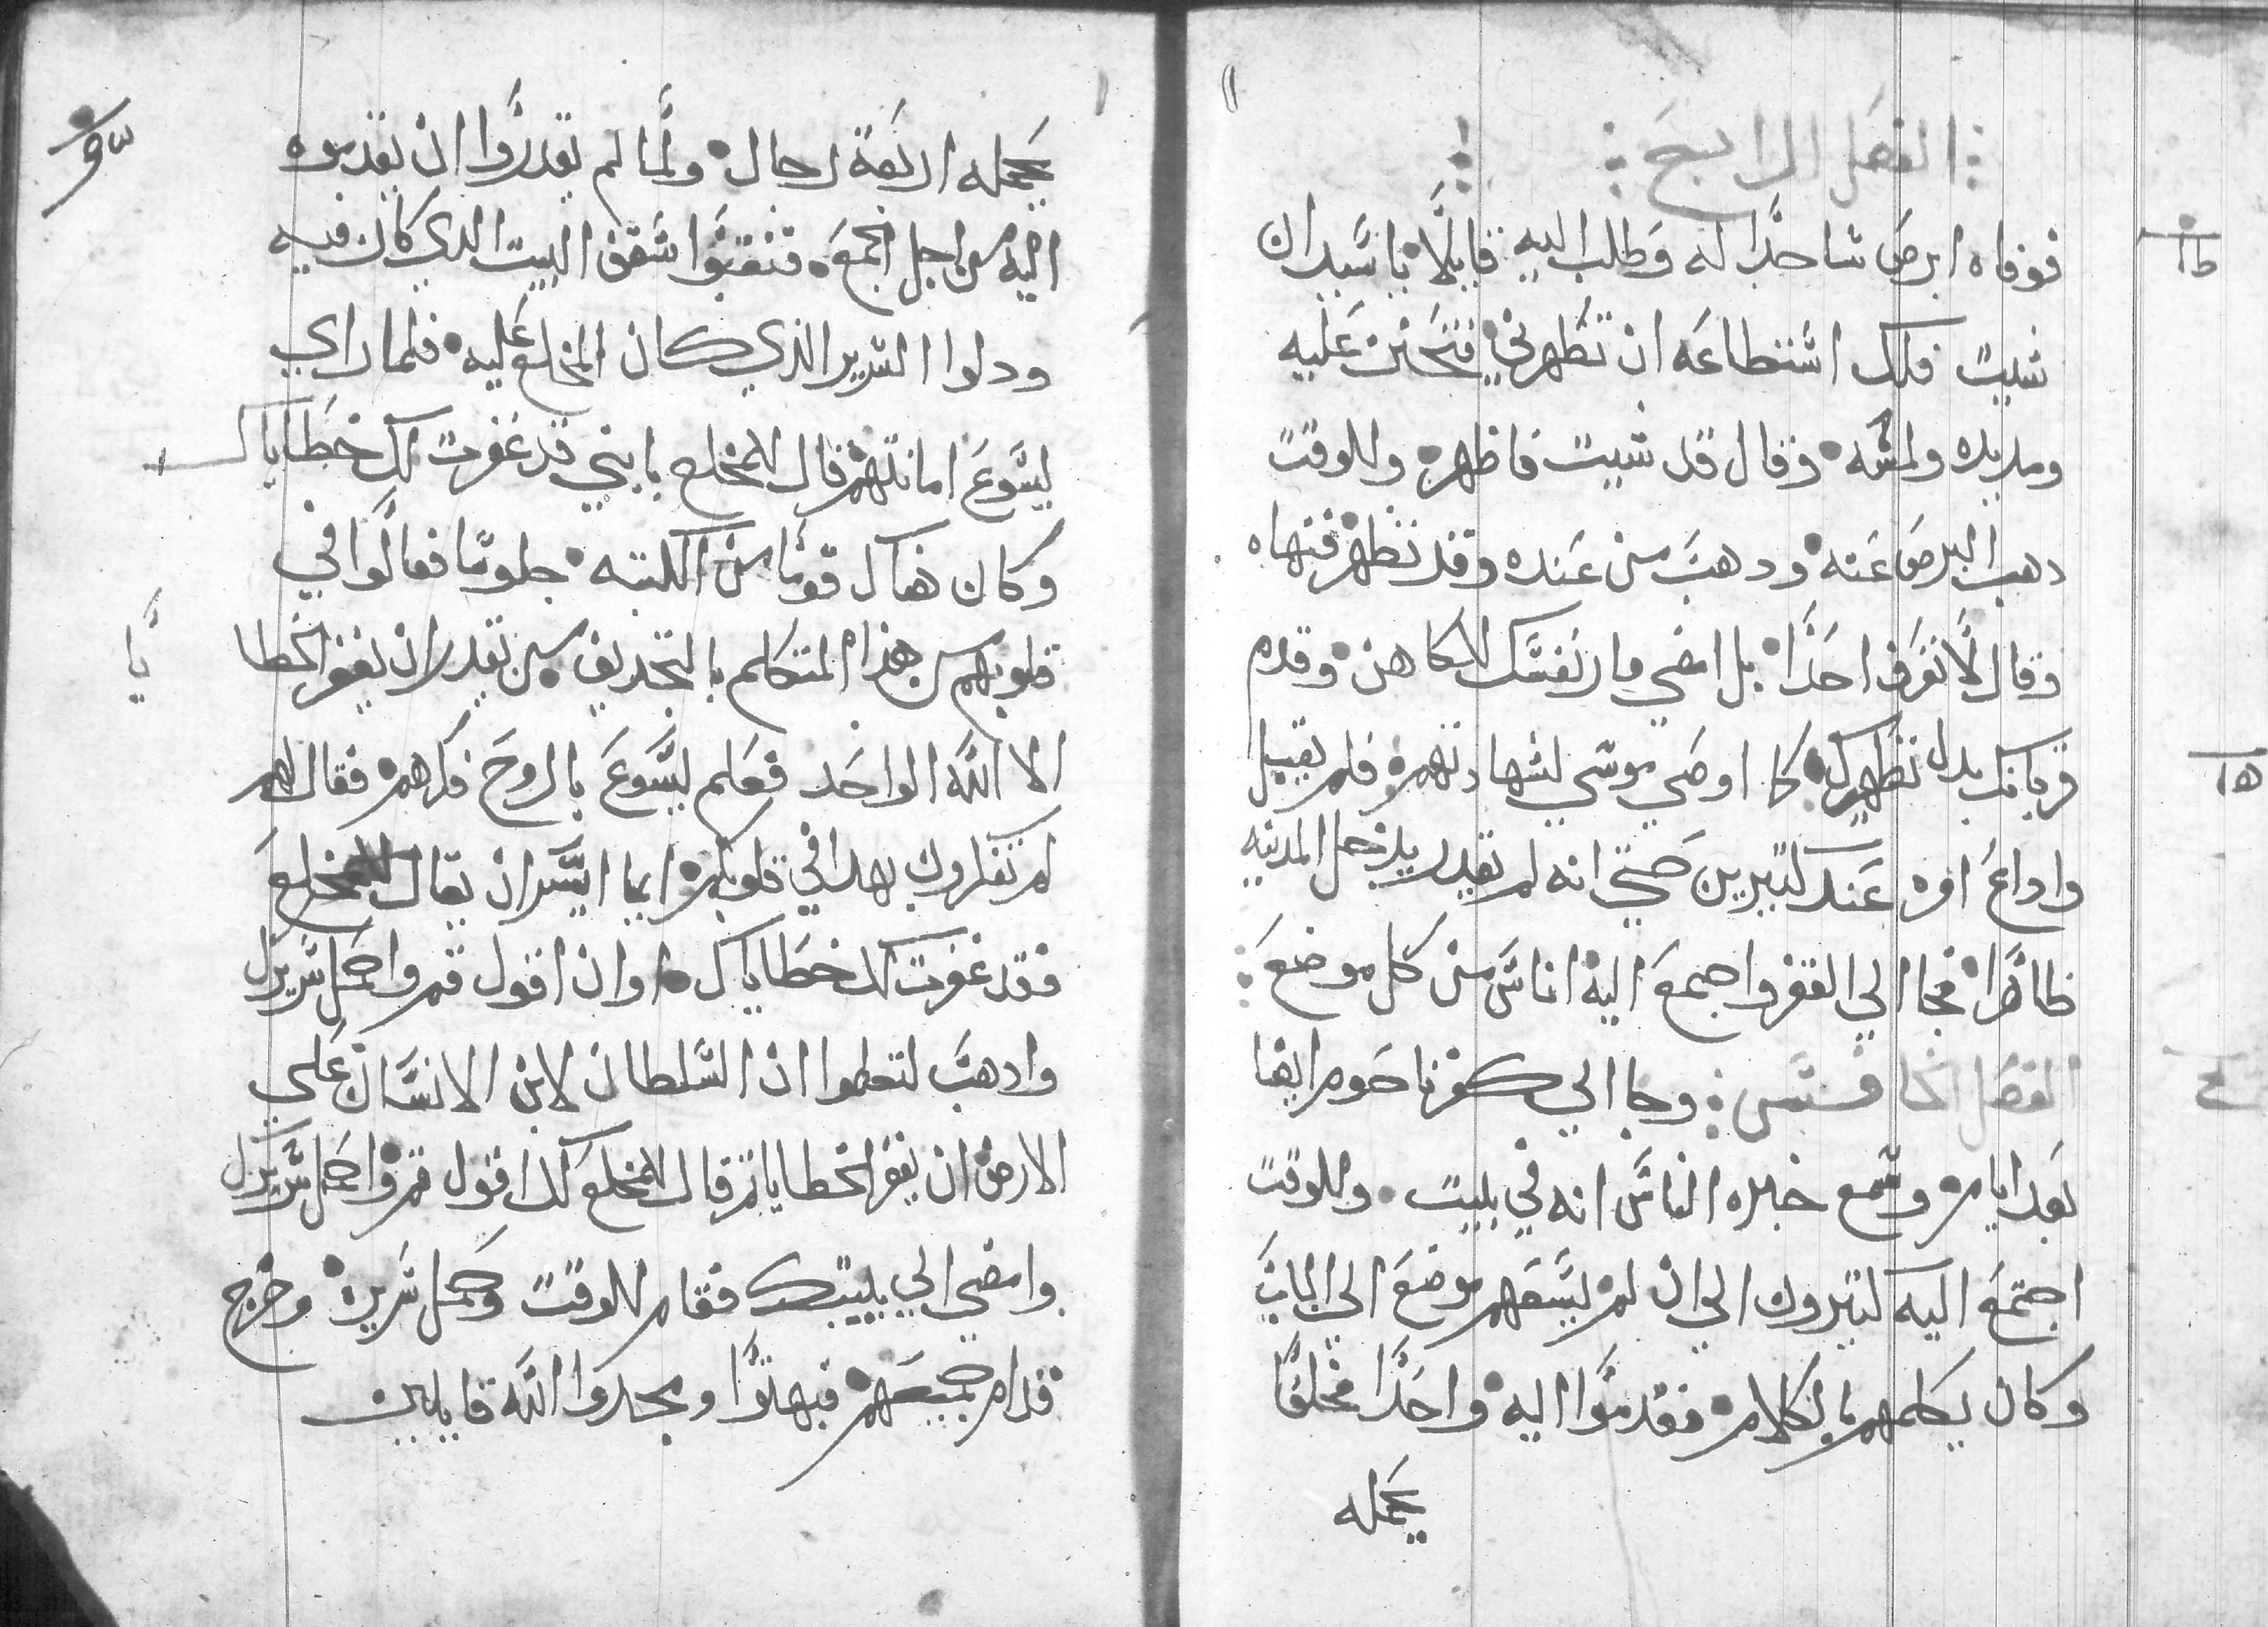 الفصل الرابع
فوفاه ابرص ساجدا له وطلب اليه قايلا يا سيد ان
شيت فلك استطاعه ان تطهرني فتحنن عليه
ومد يده ولمسه وقال قد شيت فاطهر وللوقت
دهب البرص عنه ودهب من عنده وقد تطهر فنهاه
وقال لا تعرف احدا بل امضي وار نفسك للكاهن وقدم
قربانك بدل تطهيرك كما اوصي موسي لشهادتهم فلم يقبل
واداع امره عند كتيرين حتي انه لم يقدر يدخل المدينه
ظاهرا فجا الي القفر واجمع اليه اناس من كل موضع
الفصل الخامس وجا الي كفرناحوم ايضا
بعد ايام وسمع خبره الناس انه في بيت وللوقت
اجتمع اليه كتيرون الي ان لم يسعهم موضع الي الباب
وكان يكلمهم بالكلام فقدموا اليه واحدا مخلعا
يحمله
يحمله اربعة رجال ولما لم يقدروا ان يقدموه
اليه من اجل الجمع فنقبوا سقف البيت الدي كان فيه
ودلوا السرير الذي كان المخلع عليه فلما راي
يسوع امانتهم قال للمخلع يا بني قد غفرت لك خطاياك
وكان هناك قوما من الكتبه جلوسا فقالوا في
قلوبهم من هذا المتكلم بالتجديف من يقدر ان يغفر الخطا
يا
الا الله الواحد فعلم يسوع بالروح فكرهم فقال لهم
لم تفكرون بهدا في قلوبكم ايما ايسر ان يقال للمخلع
فقد غفرت لك خطاياك او ان اقول قم واحمل سريرك
وادهب لتعلموا ان السلطان لابن الانسان علي
الارض ان يغفر الخطايا تم قال للمخلع لك اقول قم واحمل سريرك
وامضي الي بيتك فقام للوقت وحمل سريره وخرج
قدام جميعهم فبهتوا ومجدوا الله قايلين